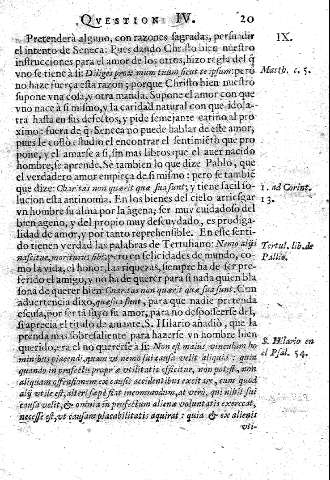 QVESTION IV. 20
Pretenderà alguno, con razones sagradas, persuadir
el intento de Seneca: Pues dando Christo bien nuestro
instrucciones para el amor de los otros, hizo regla del q̃
vno se tiene à si: Diliges proximum tuum sicut te ipsum: pero
no haze fuerça esta razon; porque Christo bien nuestro
supone vna cosa, y otra manda. Supone el amor con que
vno nace à si mismo, y la caridad natural con que idolatra
hasta en sus defectos, y pide semejante cariño al proximo:
fuera de q̃ Seneca no puede hablar de este amor,
pues le costò estudio el encontrar el sentimiẽto que propone,
y el amarse a si, sin mas libros que el auer nacido
hombre, se aprende. Se tambien lo que dize Pablo, que
el verdadero amor empieça de si mismo: pero se tambiẽ
que dize: Charitas non quærit quæ sua sunt; y tiene facil solucion
esta antinomia. En los bienes del cielo arriesgar
vn hombre su alma por la agena, ser muy cuidadoso del
bien ageno, y del propio muy descuydado, es prodigalidad
de amor, y por tanto reprehensible. En este sentido
tienen verdad las palabras de Tertuliano: Nemo alijs
nascitur, moriturus sibi: pero en felicidades de mundo, como
la vida, el honor, las riquezas, siempre ha de ser preferido
el amigo, y no ha de querer para si nada quien blasona
de querer bien: Charitas non quærit quæ sua sunt. Con
aduertencia dixo, quæ sua sunt, para que nadie pretenda
escusa, por ser tã suyo su amor, para no desposseerse del,
si aprecia el titulo de amante. S. Hilario añadiò, que la
prenda mas sobresaliente para hazerse vn hombre bien
querido, era el no quererse à si: Non est maius vinculum hominibus
placendi, quam vt nemo sui causa velit aliquid: quia
quando in profectu propriæ vtilitatis efficitur, non potest, non
aliquam offensionem ex causæ accidentibus
velit, & omnia in profectum alienæ voluntatis exerceat,
necesse est, vt causam placabilitatis aquirat: quia & ex alienis
vti-
IX.
Matth. c. 5.
1. ad Corint.
13.
Tertul. lib. de
Pallio.
S. Hilario en
el Psal. 54.